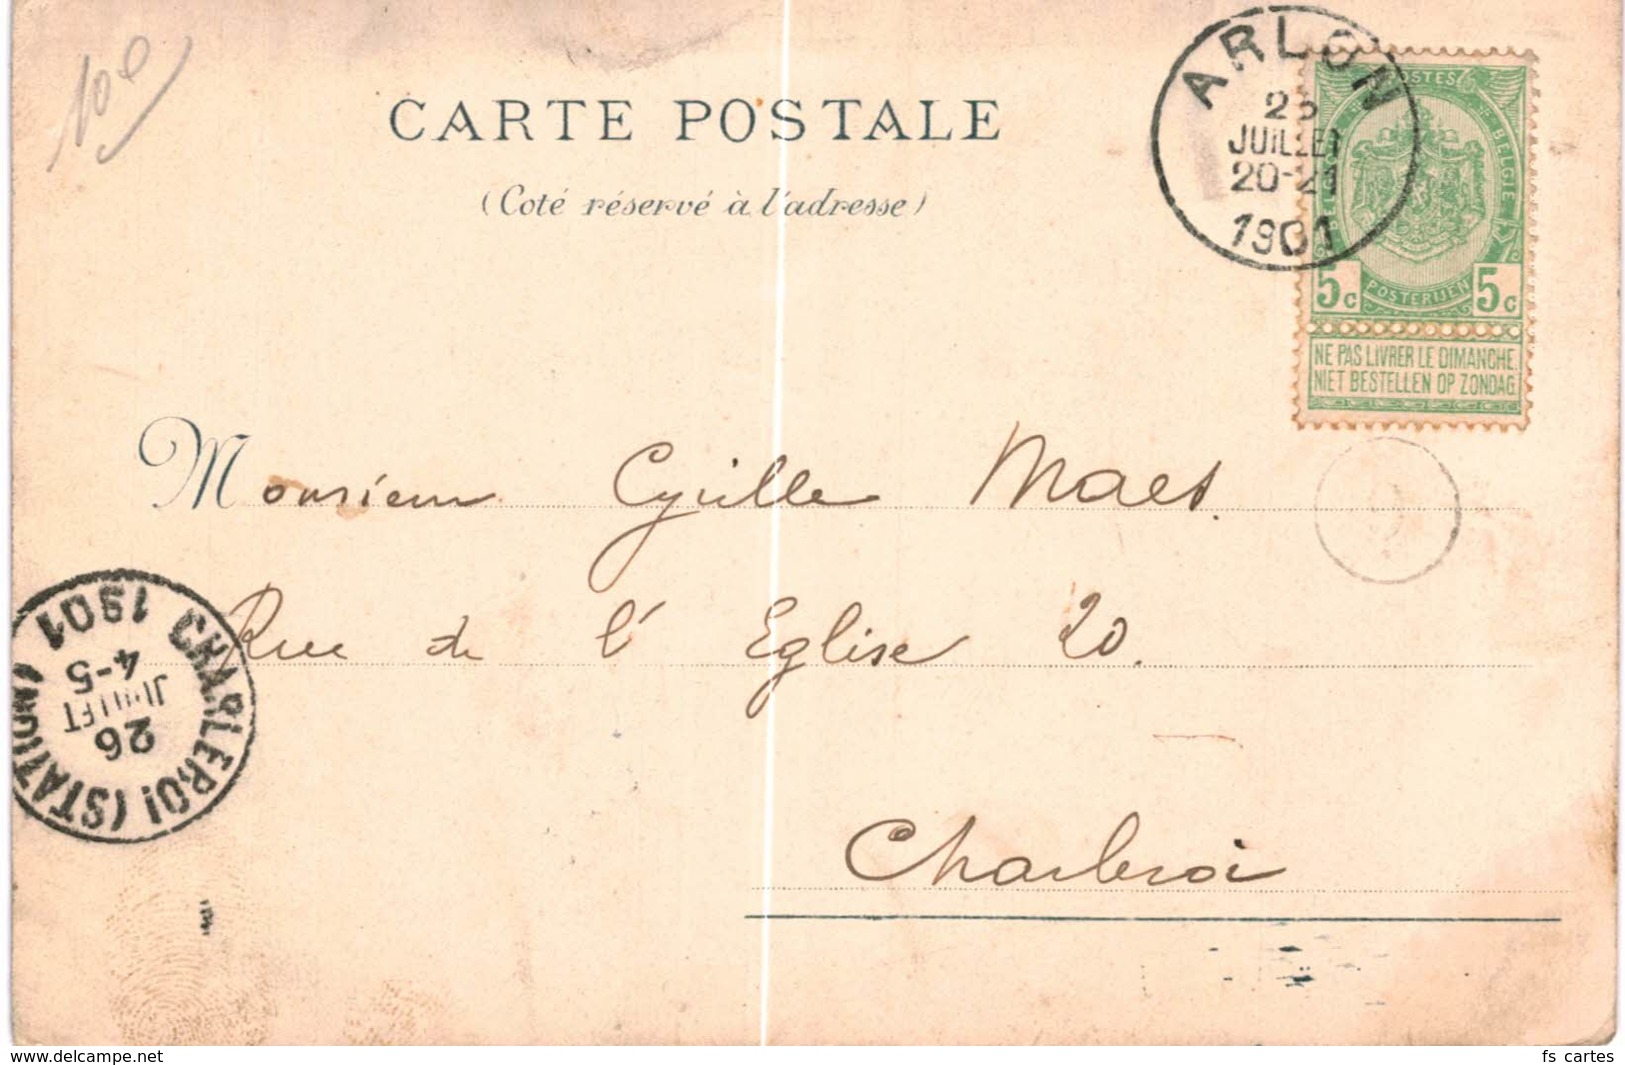 10e
CARTE POSTALE
(Coté réservé à l'adresse)
ARLON
25
JUILLET
20-21
1901
POSTES
BELGIQUE
BELGIE
5c POSTERIJEN 5c
NE PAS LIVRER LE DIMANCHE
NIET BESTELLEN OP ZONDAG
Monsieur Cyrille Maes.
Rue de l'Eglise 20.
Charleroi
CHARLEROI (STATION)
26
JUILLET
4-5
1901
www.delcampe.net
fs cartes